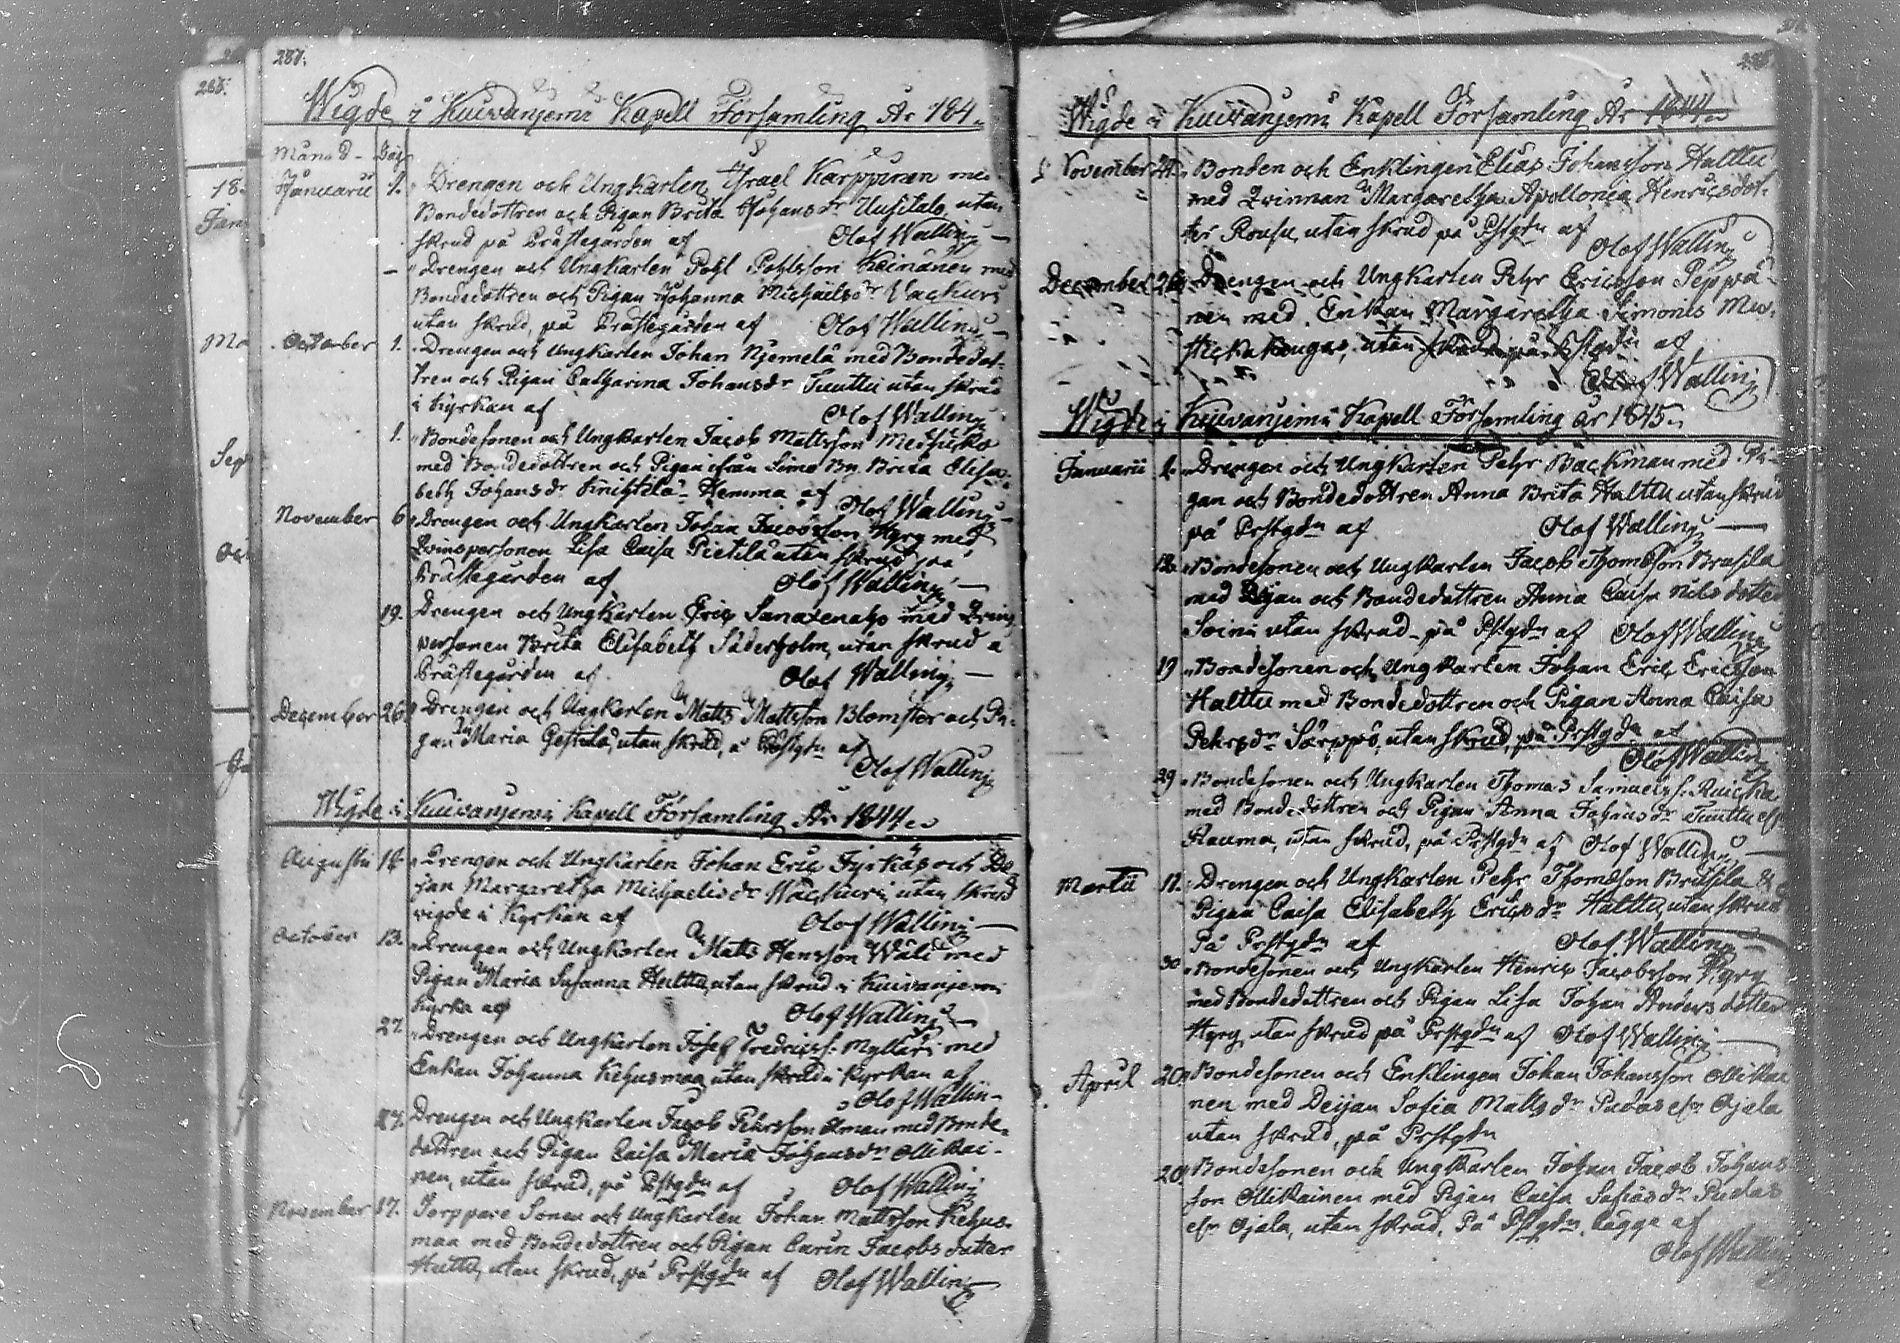 287.
Wigde i Kuivaniemi Kapell Församling År 184
Månad Dag
Januarii 1. Drengen och Ungkarlen Israel Karppinen med
Bondedottren och Pigan Brita Johansdr Uusitalo, utan
skrud på Prästegården af Olof Walling
" Drengen och Ungkarlen Pohl Pohlsson Keinänen med
Bondedottren och Pigan Johanna Michaelsdr Wackuri
utan skrud, på Prästegården af Olof Walling
October 1. Drengen och Ungkarlen Johan Njemelä med Bondedot-
tren och Pigan Catharina Johansdr Tuuttu utan skrud
i Kyrkan af Olof Walling
1. Bondesonen och Ungkarlen Jacob Mattsson
med Bondedottren och Pigan ifrån Simo By. Brita Elisa-
beth Johansdr Knihtilä Hemma af Olof Walling
November 6. Drengen och Ungkarlen Johan Jacobsson Hyry med
Qvinspersonen Lisa Caisa Pietilä utan skrud på
Prästegården af Olof Walling
19. Drengen och Ungkarlen Eric Sanaxenaho med Qvins
personen Brita Elisabeth Söderholm, utan skrud å
Prästegården af Olof Walling
December 26. Drengen och Ungkarlen Matts Mattsson Blomster och Pi-
gan Maria Gestilä, utan skrud, å Pstgdn af
Olof Walling
Wigde i Kuivaniemi Kapell Församling År 1844.
Augusti 18. Drengen och Ungkarlen Johan Eric Fyrkäs och De-
jan Margaretha Michaelisdr Wackuri, utan skrud
vigde i Kyrkan af Olof Walling
October 13. Drengen och Ungkarlen Matts Hansson Wäli med
Pigan Maria Susanna Hulttu, utan skrud i Kuivaniemi
Kyrka af Olof Walling
27. Drengen och Ungkarlen Josef Fredricss: Mylläri med
Enkan Johanna Kehusmaa, utan skrud i Kyrkan af
Olof Wallin
27. Drengen och Ungkarlen Jacob Pehrsson Öman med Bonde-
dottren och Pigan Caisa Maria Johansdr Ollikai-
nen, utan skrud, på Pstgdn af Olof Walling
November 17. Torppare Sonen och Ungkarlen Johan Mattsson Kehus-
maa med Bondedottren och Pigan Carin Jacobsdotter
Huttu, utan skrud, på Prstgdn af Olof Walling
288.
Wigde i Kuivaniemi Kapell Församling År 1844.
November 24. Bonden och Enklingen Elias Johansson Halttu
med Qvinnan Margaretha Apollonea Henricsdot-
ter Rousu, utan skrud på Pstgdn af
Olof Walling
December 26. Drengen och Ungkarlen Pehr Ericsson Peppä-
nen med Enkan Margaretha Simonis
utan skrud på Pstgdn af
Olof Walling
Wigde i Kuivaniemi Kapell Församling År 1845.
Januarii 1. Drengen och Ungkarlen Pehr Backman med Pi-
gan och Bondedottren Anna Brita Halttu utan skrud
på Prstgdn af Olof Walling
12. Bondesonen och Ungkarlen Jacob Thomsson Brusila
med Dejan och Bondedottren Anna Caisa Nils dotter
Soini utan skrud på Pstgdn af Olof Walling
19 Bondesonen och Ungkarlen Johan Eric Ericsson
Halttu med Bondedottren och Pigan Anna Caisa
Pehrsdr Särppö, utan skrud, på Prstgdn af
Olof Walling
29 Bondesonen och Ungkarlen Thomas Samuels s: Ruicka
med Bondedottren och Pigan Anna Johansdr Tuuttu
Rauma, utan skrud, på Prstgdn af Olof Walling
Martii 12. Drengen och Ungkarlen Pehr Thomsson Brusila &
Pigan Caisa Elisabeth Ericsdr Halttu, utan skrud
På Prstgdn af Olof Walling
30. Bondesonen och Ungkarlen Henric Jacobsson Hyry
med Bondedottren och Pigan Lisa Johan Anders dotter
Hyry utan skrud på Prstgdn af Olof Walling
April 20. Bondesonen och Enklingen Johan Johansson Ollikai
nen med Deijan Sofia Mattsdr Pudas Ojala
utan skrud, på Prstgdn
20. Bondesonen och Ungkarlen Johan Jacob Johans
son Ollikainen med Pigan Caisa Sofiasdr Pudas
Ojala, utan skrud, På Pstgdn. bägge af
Olof Wallin